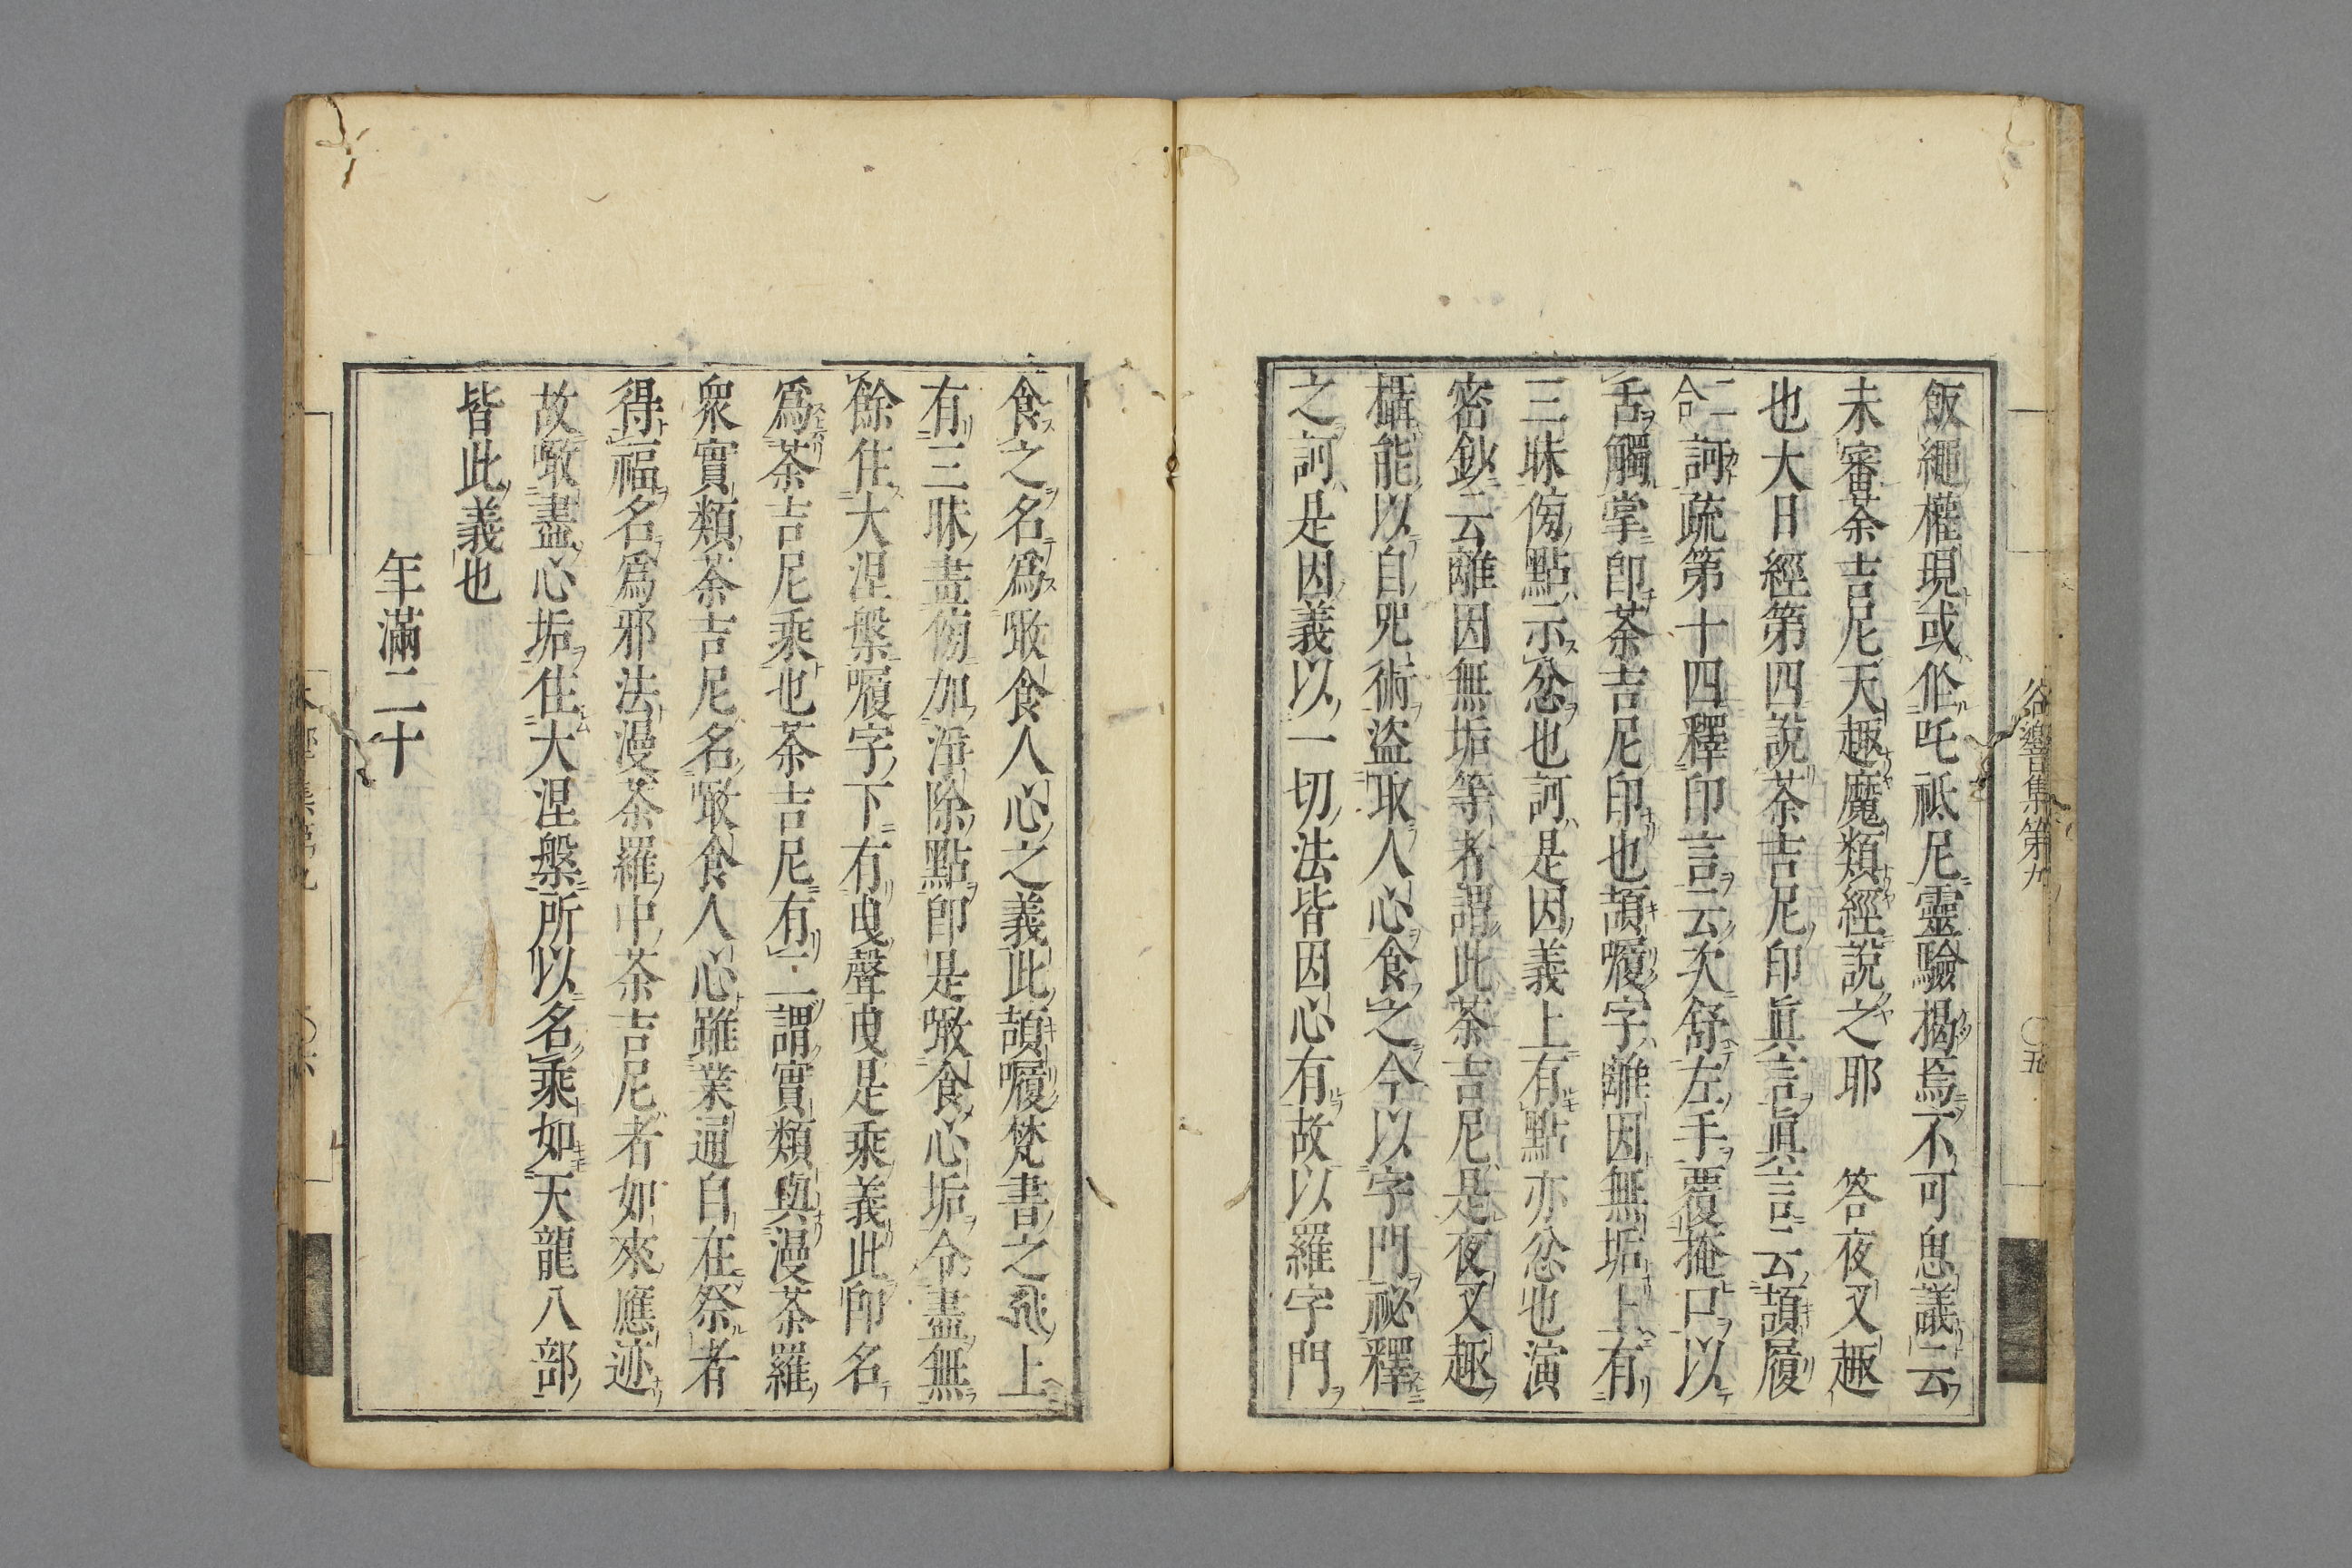 飯繩權現或伱吒祗尼靈驗揭焉不可思議云
未審荼吉尼天趣魔類經說之耶 答夜叉趣
也大日經第四說荼吉尼印眞言眞言云頡履
二合訶疏第十四釋印言云次舒左手覆掩口以
舌觸掌印荼吉尼印也頡㘑字離因無垢上有
三昧傍點示忿也訶是因義上有點亦忿也演
密鈔云離因無垢等者謂此荼吉尼是夜叉趣
攝能以自咒術盜取人心食之今以字門祕釋
之訶是因義以一切法皆因心有故以羅字門
食之名爲噉食人心之義此頡㘑梵書之 上
有三昧畫傍加淨除點卽是噉食心垢令盡無
餘住大涅槃㘑字下有曳聲曳是乘義此印名
爲荼吉尼乘也荼吉尼有二謂實類與漫荼羅
衆實類荼吉尼名噉食人心雖業通自在祭者
得福名爲邪法漫荼羅中荼吉尼者如來應迹
故噉盡心垢住大涅槃所以名乘如天龍八部
皆此義也
年滿二十
谷響集第九 〇五